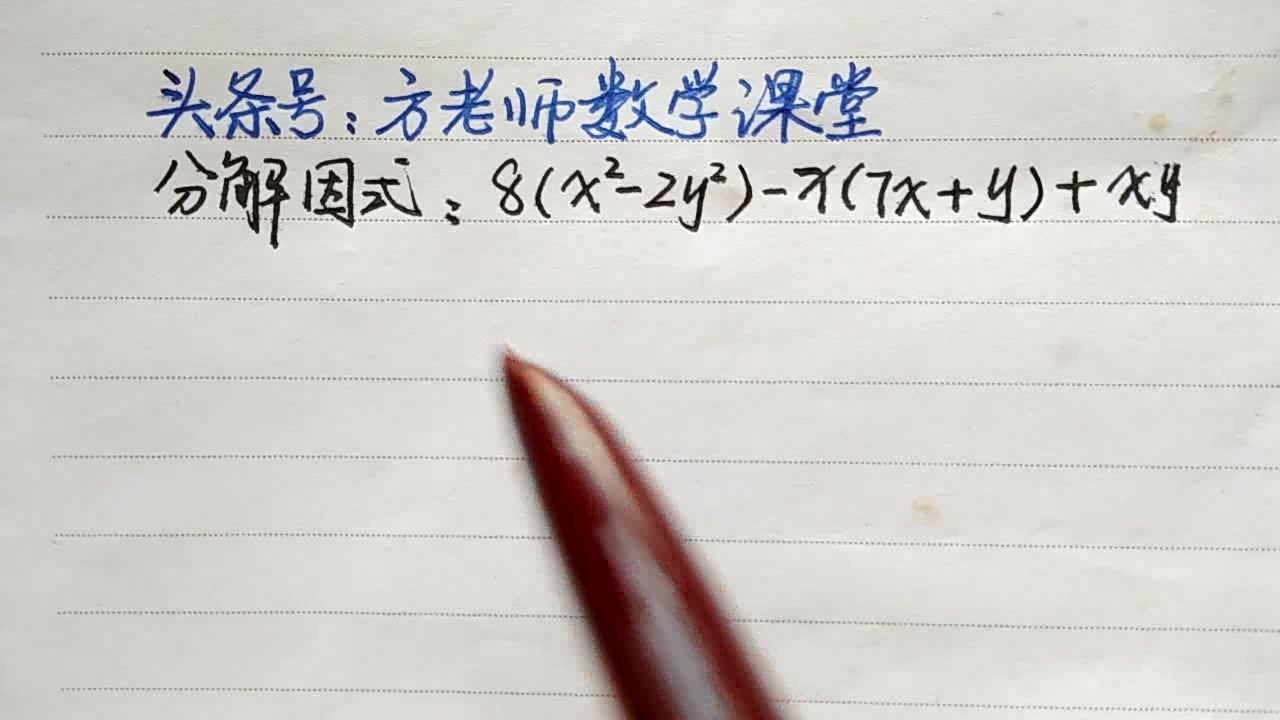 头条号:方老师数学课堂
分解因式:8(x²-2y²)-x(7x+y)+xy